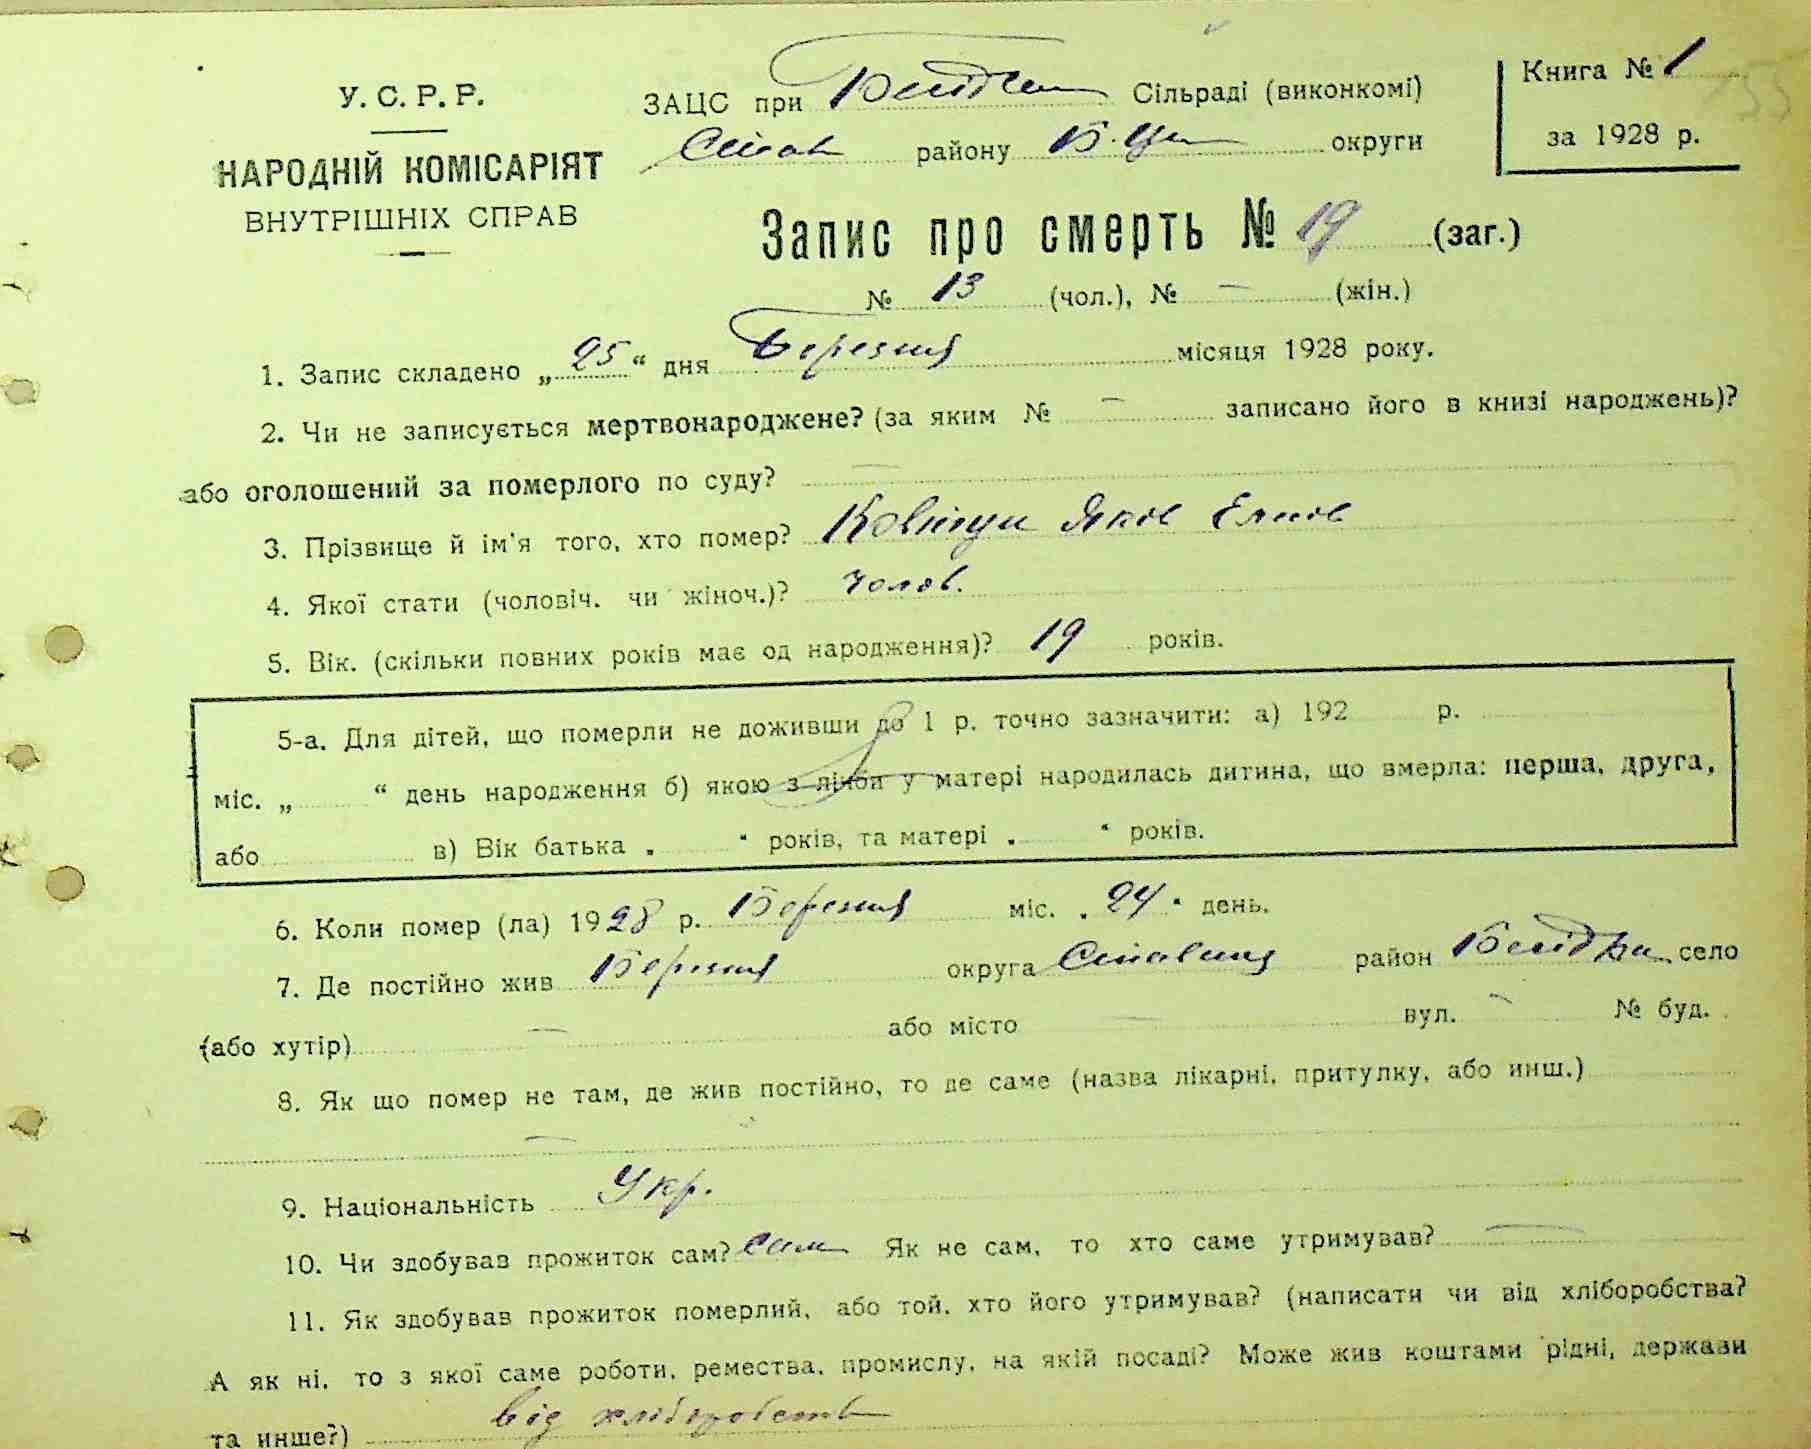 У. С. Р. Р.
НАРОДНІЙ КОМІСАРІЯТ
ВНУТРІШНІХ СПРАВ
ЗАЦС при Сільраді (виконкомі)
Став району Б. Це округи
Книга № 1
за 1928 р.
155
Запис про смерть № 19 (заг.)
№ 13 (чол.), № — (жін.)
1. Запис складено „25“ дня Березня місяця 1928 року.
2. Чи не записується мертвонароджене? (за яким № — записано його в книзі народжень)?
або оголошений за померлого по суду? —
3. Прізвище й ім'я того, хто помер? Яков
4. Якої стати (чоловіч. чи жіноч.)? чолов.
5. Вік. (скільки повних років має од народження)? 19 років.
5-а. Для дітей, що померли не доживши до 1 р. точно зазначити: а) 192 р.
міс. „ “ день народження б) якою з лічби у матері народилась дитина, що вмерла: перша, друга,
або в) Вік батька „ “ років, та матері „ “ років.
6. Коли помер (ла) 1928 р. Березня міс. „24“ день.
7. Де постійно жив округа район село
(або хутір) — або місто — вул. — № буд.
8. Як що помер не там, де жив постійно, то де саме (назва лікарні, притулку, або инш.)
—
9. Національність Укр.
10. Чи здобував прожиток сам? сам Як не сам, то хто саме утримував? —
11. Як здобував прожиток померлий, або той, хто його утримував? (написати чи від хліборобства?
А як ні, то з якої саме роботи, ремества, промислу, на якій посаді? Може жив коштами рідні, держави
та инше?) від хліборобств